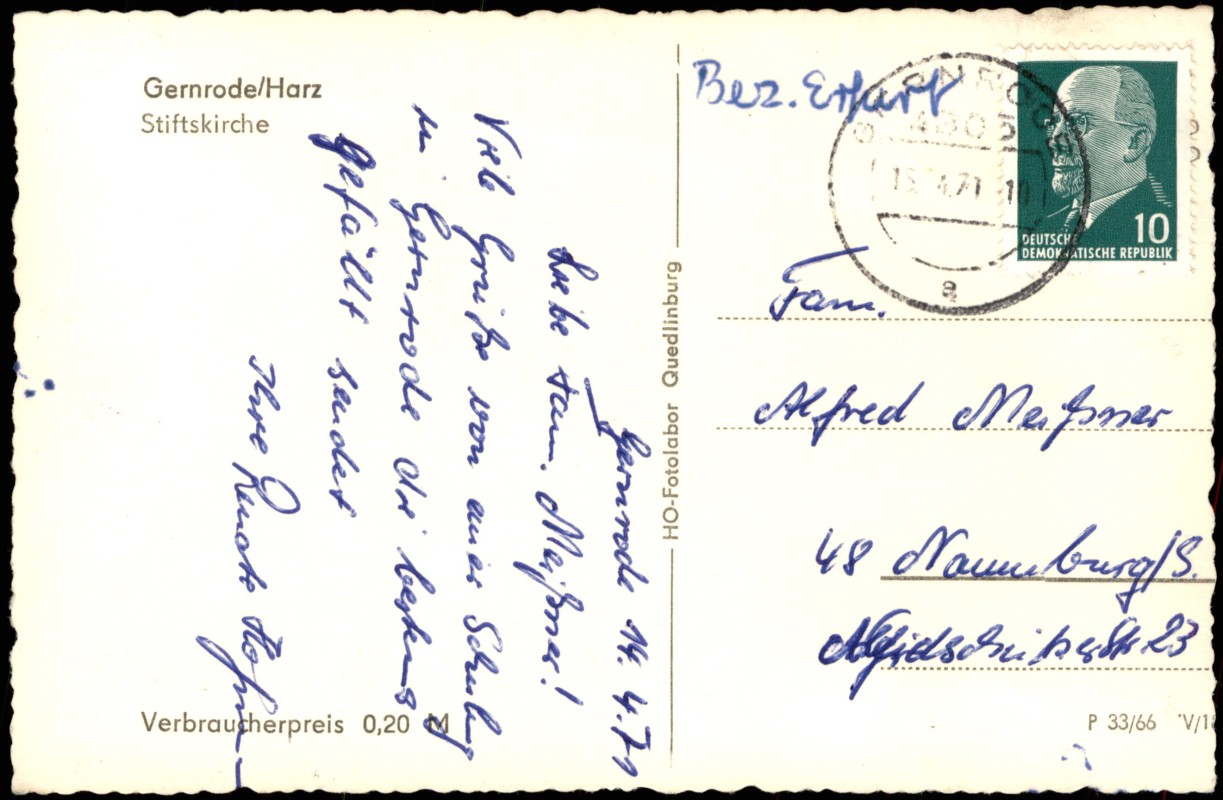 Gernrode/Harz
Stiftskirche
Gernrode 14. 4. 71
Liebe Fam. Meißner!
Viele Grüße von einer Schulung
in Gernrode die bestens
gefällt sendet
Ihre Renate
Verbraucherpreis 0,20 M
HO-Fotolabor Quedlinburg
Bez. Erfurt
GERNRODE
4305
4.71 10
a
10
DEUTSCHE
DEMOKRATISCHE REPUBLIK
Fam.
Alfred Meißner
48 Naumburg/S.
23
P 33/66